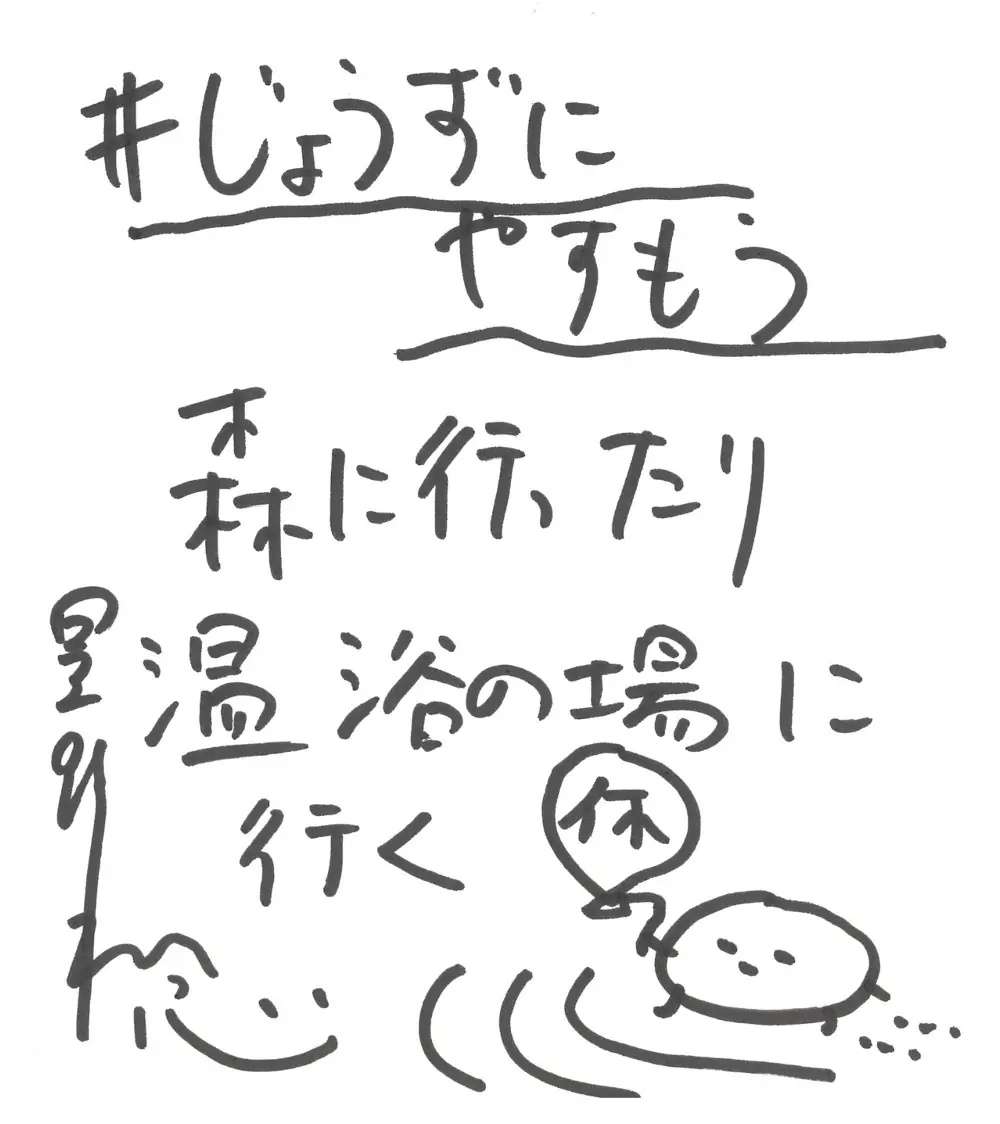 #じょうずに
やすもう
森に行ったり
温浴の場に
行く
休